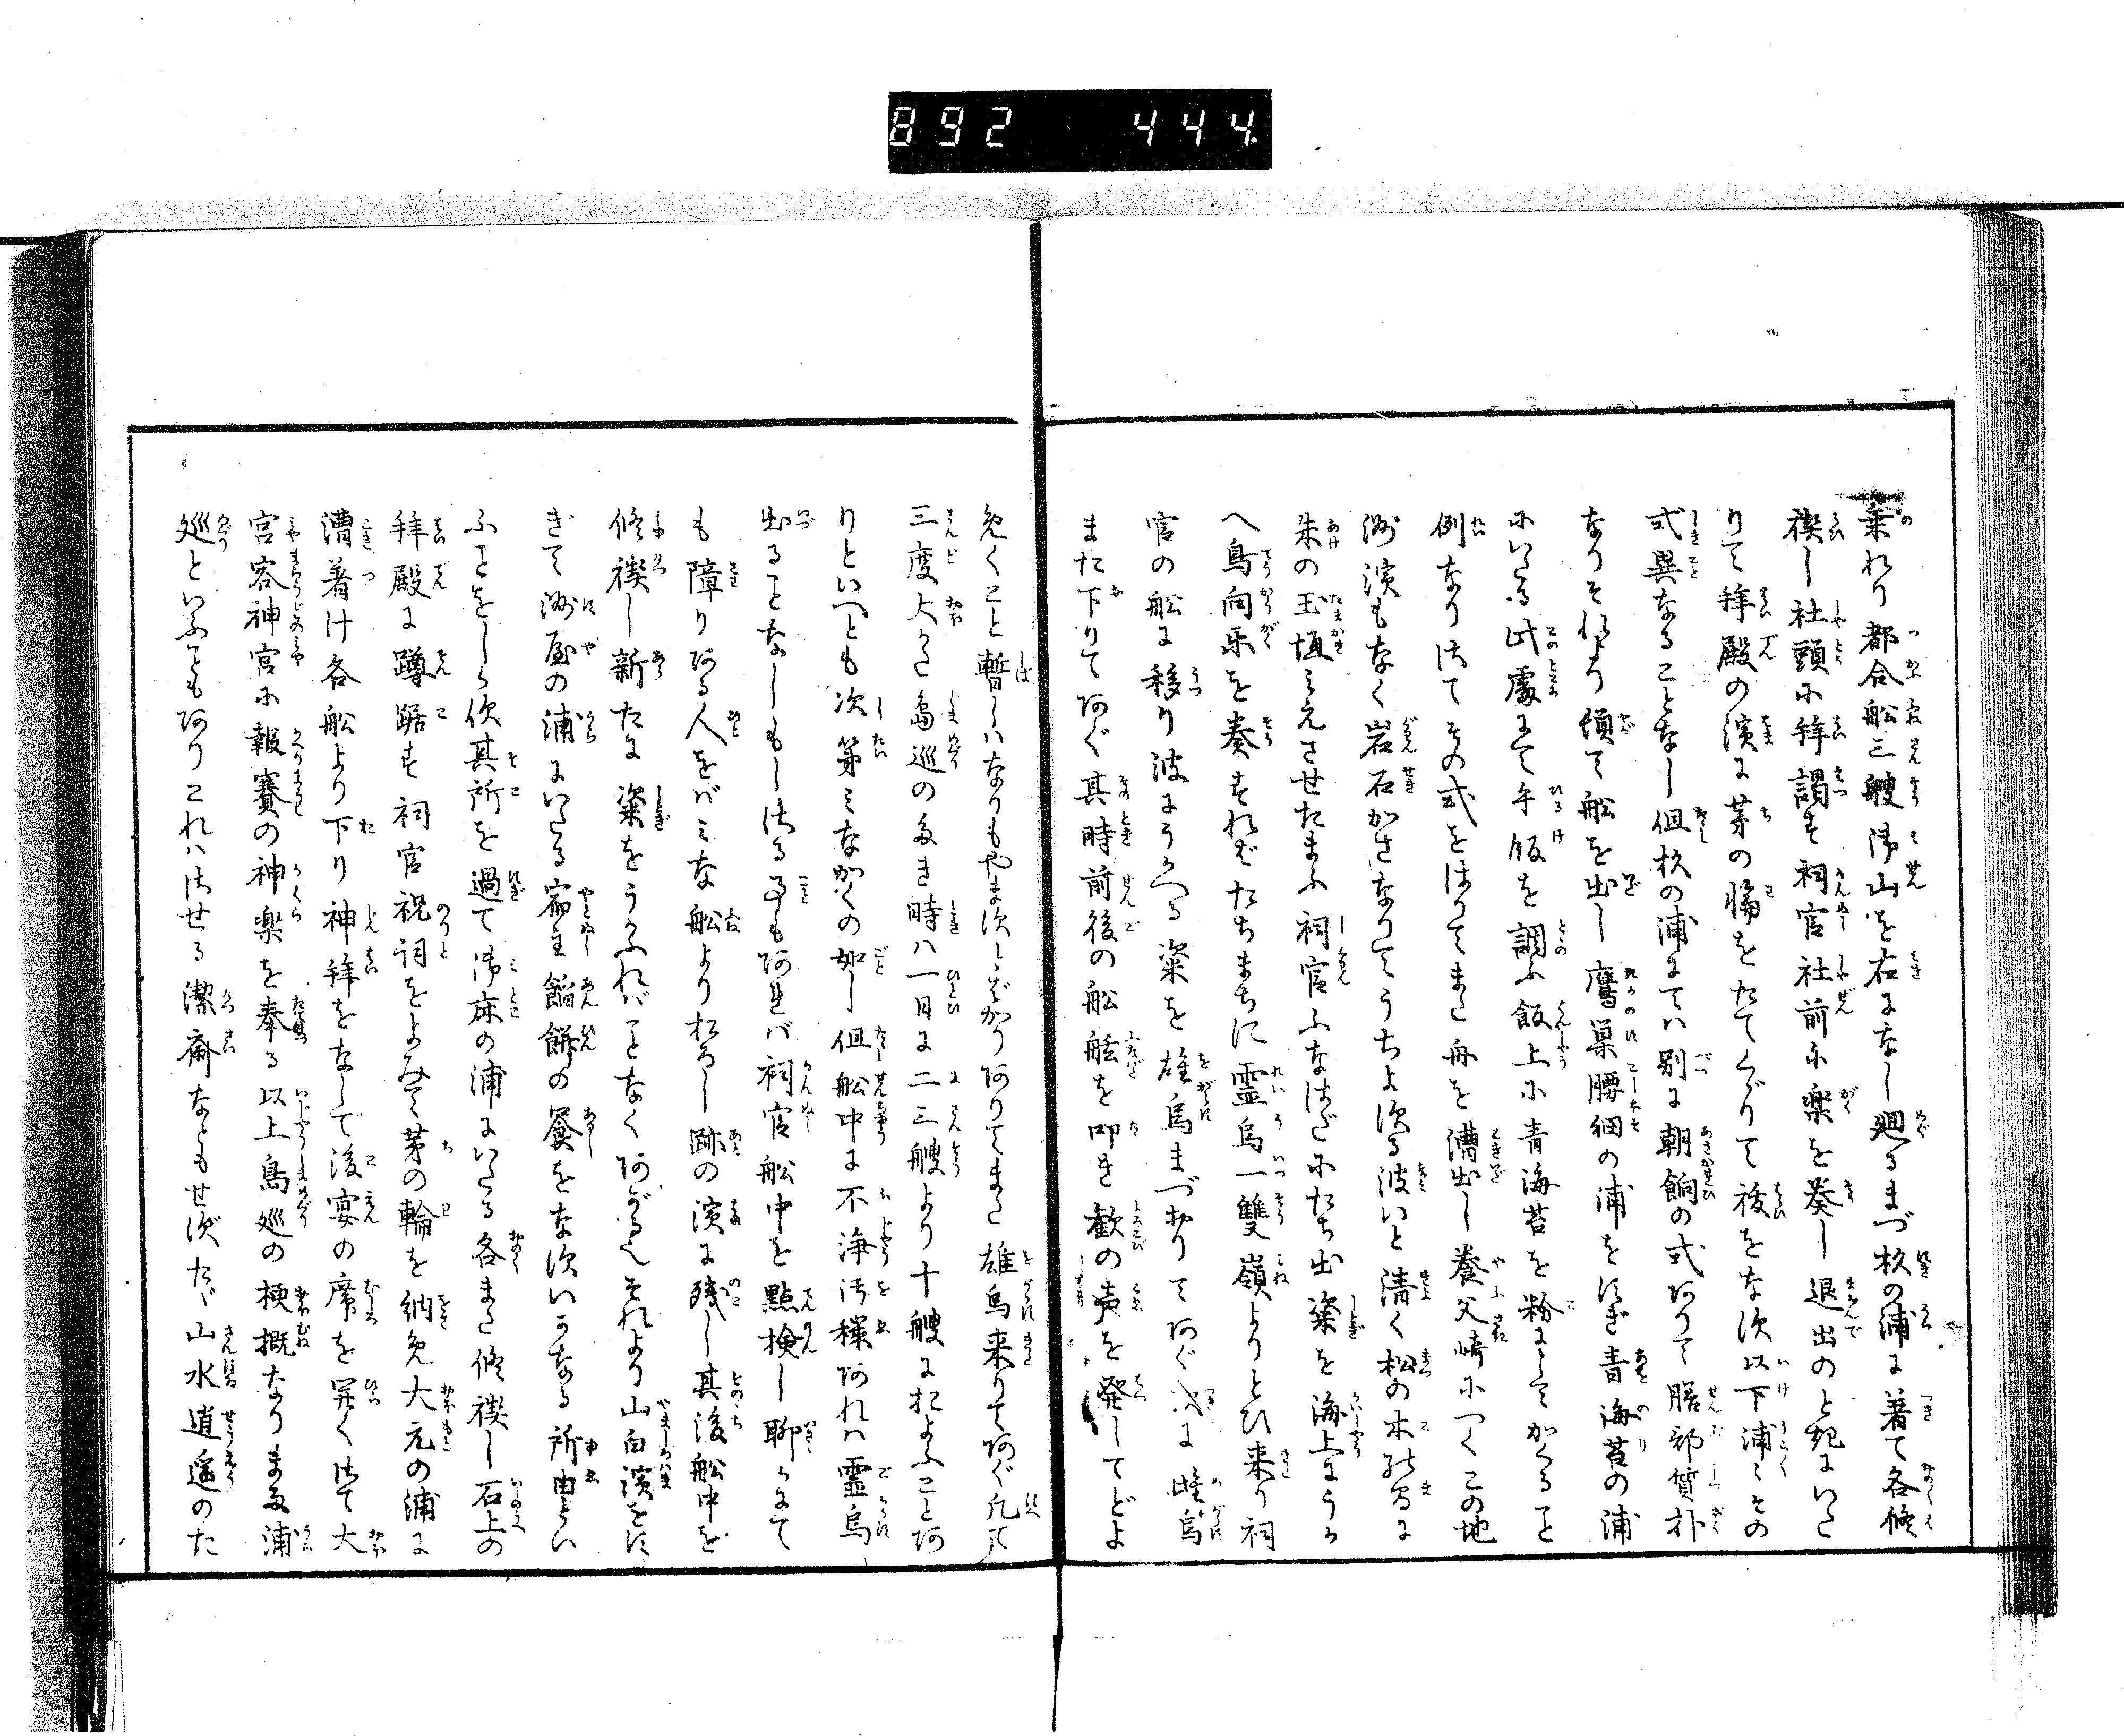 892 444.
乗れり都合船三艘御山を右になし廻るまづ杉の浦に着て各修
禊し社頭に拝謁す祠官社前に楽を奏し退出のと
りて拝殿の濱に茅の輪をたてくゞりて祓をなす以下浦々その
式異なることなし但杉の浦にては別に朝餉の式ありて膳部質朴
なりそれより頓て船を出し鷹巣腰細の浦をすぎ青海苔の浦
にいたる此處にて午飯を調ふ飯上に青海苔を粉にしてかくるこ
例なりはてその式をはりてまた舟を漕出し養父崎につくこの地
洲濱もなく岩石かさなりてうちよする波いと清く松の木のまに
朱の玉垣みえさせたまふ祠官ふなばたにたち出粢を海上にうか
へ鳥向楽を奏すればたちまちに霊烏一雙嶺よりとひ来り祠
官の船に移り波にうかへる粢を雄烏まづ下りてあぐ次に雌烏
また下りてあぐ其時前後の船舷を叩き歓の声を発してどよ
めくこと暫しはなりもやまずとばかりありてまた雄烏来りてあぐ凡
三度大かた島巡の多き時は一日に二三艘より十艘におよふことあ
りといへとも次第みなかくの如し但船中に不浄汚穢あれは霊烏
出ることなしもしはる事もあれば祠官船中を點検し聊にて
も障りある人をばみな船よりおろし跡の濱に残し其後船中を
修禊し新たに粢をうかふればことなくあがるそれより山白濱をす
ぎて洲屋の浦にいたる宿主餡餅の饗をなすいかなる所由とい
ふことをしらず其所を過て御床の浦にいたる各また修禊し石上の
拝殿に蹲踞す祠官祝詞をよみて茅の輪を納め大元の浦に
漕着け各船より下り神拝をなして後宴の席を開くはて大
宮客神宮に報賽の神楽を奉る以上島巡の梗概なりまた浦
巡といふこともありこれははせる潔齋なともせずたゞ山水逍遥のた